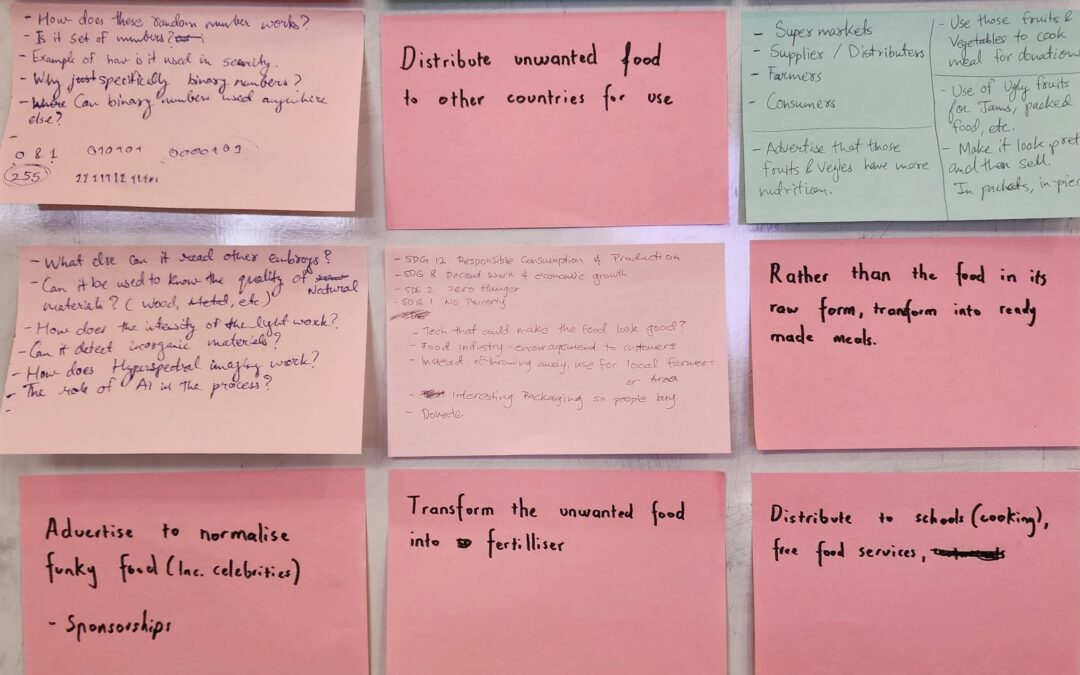 - How does these random number works?
- Is it set of numbers?
- Example of how is it used in security.
- Why just specifically binary numbers?
- Where Can binary numbers used anywhere
else?
-
0 & 1 010101 0000101
255 11111111
Distribute unwanted food
to other countries for use
- Super markets
- Supplier / Distributers
- Farmers
- Consumers
- Advertise that those
fruits & Veggies have more
nutrition.
- Use those fruits &
Vegetables to cook
meal for donation
- Use of Ugly fruits
for Jams, packed
food, etc.
- Make it look
and then sell.
In packets,
- What else can it read other embroys?
- Can it be used to know the quality of Natural
materials? (Wood, Metal, etc.)
- How does the intensity of the light work?
- Can it detect inorganic materials?
- How does Hyperspectral imaging work?
- The role of AI in the process?
-
- SDG 12 Responsible Consumption & Production
- SDG 8 Decent Work & economic growth
- SDG 2 Zero Hunger
- SDG 1 No Poverty
- Tech that could make the Food look good?
- Food industry - encouragement to customers
- Instead of throwing away, use for local farmers
or Area
- Interesting Packaging so people buy
- Donate
Rather than the food in its
raw form, transform into ready
made meals.
Advertise to normalise
funky food (Inc. celebrities)
- Sponsorships
Transform the unwanted food
into fertilliser
Distribute to schools (cooking),
free food services,